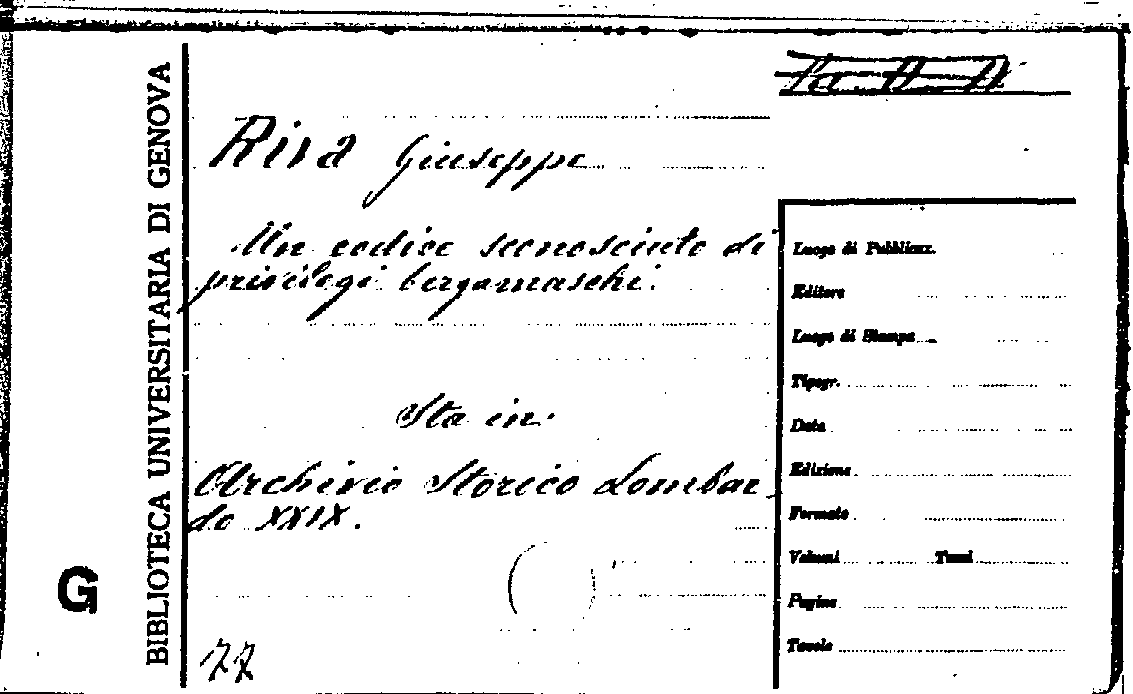 BIBLIOTECA UNIVERSITARIA DI GENOVA
G
Riva Giuseppe
Un codice sconosciuto di
privilegi bergamaschi.
Sta in:
Archivio Storico Lombar-
do XXIX.
77
Luogo di Pubblicaz.
Editore
Luogo di Stampa
Tipogr.
Data
Edizione
Formato
Volumi Tomi
Pagine
Tavole